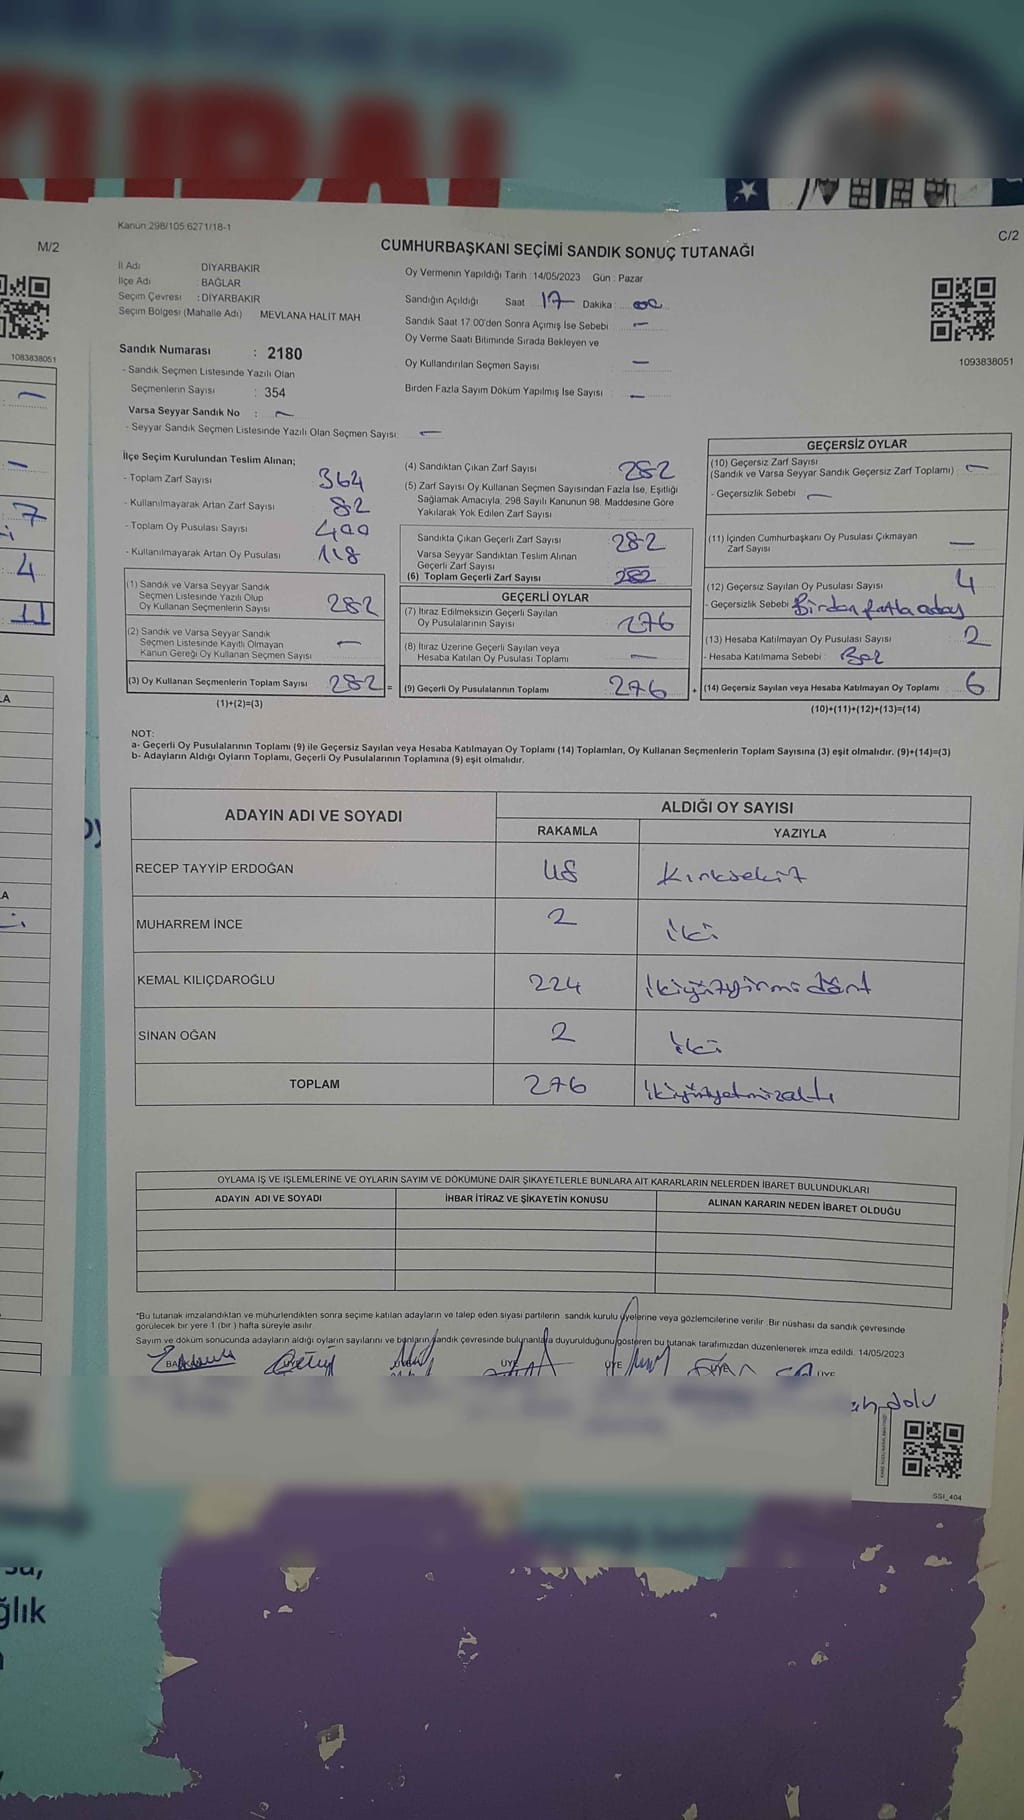 Kanun 298/105.6271/18-1
M/2
C/2
CUMHURBAŞKANI SEÇİMİ SANDIK SONUÇ TUTANAĞI
İl Adı DİYARBAKIR
İlçe Adı : BAĞLAR
Seçim Çevresi : DİYARBAKIR
Seçim Bölgesi (Mahalle Adı) MEVLANA HALİT MAH
Oy Vermenin Yapıldığı Tarih : 14/05/2023 Gün : Pazar
Sandığın Açıldığı Saat 17 Dakika : 00
Sandık Saat 17.00'den Sonra Açılmış İse Sebebi : —
Oy Verme Saati Bitiminde Sırada Bekleyen ve
Oy Kullandırılan Seçmen Sayısı : —
Birden Fazla Sayım Döküm Yapılmış İse Sayısı : —
1083838051
1093838051
Sandık Numarası : 2180
- Sandık Seçmen Listesinde Yazılı Olan
Seçmenlerin Sayısı : 354
Varsa Seyyar Sandık No : —
- Seyyar Sandık Seçmen Listesinde Yazılı Olan Seçmen Sayısı: —
İlçe Seçim Kurulundan Teslim Alınan;
- Toplam Zarf Sayısı 364
- Kullanılmayarak Artan Zarf Sayısı 82
- Toplam Oy Pusulası Sayısı 400
- Kullanılmayarak Artan Oy Pusulası 118
(1) Sandık ve Varsa Seyyar Sandık
Seçmen Listesinde Yazılı Olup
Oy Kullanan Seçmenlerin Sayısı 282
(2) Sandık ve Varsa Seyyar Sandık
Seçmen Listesinde Kayıtlı Olmayan
Kanun Gereği Oy Kullanan Seçmen Sayısı —
(3) Oy Kullanan Seçmenlerin Toplam Sayısı 282 =
(1)+(2)=(3)
(4) Sandıktan Çıkan Zarf Sayısı 282
(5) Zarf Sayısı Oy Kullanan Seçmen Sayısından Fazla İse, Eşitliği
Sağlamak Amacıyla; 298 Sayılı Kanunun 98. Maddesine Göre
Yakılarak Yok Edilen Zarf Sayısı
Sandıkta Çıkan Geçerli Zarf Sayısı 282
Varsa Seyyar Sandıktan Teslim Alınan
Geçerli Zarf Sayısı —
(6) Toplam Geçerli Zarf Sayısı 282
GEÇERLİ OYLAR
(7) İtiraz Edilmeksizin Geçerli Sayılan
Oy Pusulalarının Sayısı 276
(8) İtiraz Üzerine Geçerli Sayılan veya
Hesaba Katılan Oy Pusulası Toplamı —
(9) Geçerli Oy Pusulalarının Toplamı 276 +
GEÇERSİZ OYLAR
(10) Geçersiz Zarf Sayısı
(Sandık ve Varsa Seyyar Sandık Geçersiz Zarf Toplamı) —
- Geçersizlik Sebebi : —
(11) İçinden Cumhurbaşkanı Oy Pusulası Çıkmayan
Zarf Sayısı —
(12) Geçersiz Sayılan Oy Pusulası Sayısı 4
- Geçersizlik Sebebi : Birden fazla aday
(13) Hesaba Katılmayan Oy Pusulası Sayısı 2
- Hesaba Katılmama Sebebi : Boş
(14) Geçersiz Sayılan veya Hesaba Katılmayan Oy Toplamı 6
(10)+(11)+(12)+(13)=(14)
7
4
11
NOT:
a- Geçerli Oy Pusulalarının Toplamı (9) ile Geçersiz Sayılan veya Hesaba Katılmayan Oy Toplamı (14) Toplamları, Oy Kullanan Seçmenlerin Toplam Sayısına (3) eşit olmalıdır. (9)+(14)=(3)
b- Adayların Aldığı Oyların Toplamı, Geçerli Oy Pusulalarının Toplamına (9) eşit olmalıdır.
ADAYIN ADI VE SOYADI ALDIĞI OY SAYISI
RAKAMLA YAZIYLA
RECEP TAYYİP ERDOĞAN 48 Kırksekiz
MUHARREM İNCE 2 iki
KEMAL KILIÇDAROĞLU 224 ikiyüzyirmi dört
SİNAN OĞAN 2 iki
TOPLAM 276 ikiyüzyetmişaltı
OYLAMA İŞ VE İŞLEMLERİNE VE OYLARIN SAYIM VE DÖKÜMÜNE DAİR ŞİKAYETLERLE BUNLARA AİT KARARLARIN NELERDEN İBARET BULUNDUKLARI
ADAYIN ADI VE SOYADI İHBAR İTİRAZ VE ŞİKAYETİN KONUSU ALINAN KARARIN NEDEN İBARET OLDUĞU
*Bu tutanak imzalandıktan ve mühürlendikten sonra seçime katılan adayların ve talep eden siyasi partilerin sandık kurulu üyelerine veya gözlemcilerine verilir. Bir nüshası da sandık çevresinde
görülecek bir yere 1 (bir) hafta süreyle asılır.
Sayım ve döküm sonucunda adayların aldığı oyların sayılarını ve bunların sandık çevresinde bulunanlara duyurulduğunu gösteren bu tutanak tarafımızdan düzenlenerek imza edildi. 14/05/2023
BAŞKAN ÜYE ÜYE ÜYE ÜYE ÜYE
dolu
SSI_404
ğlık